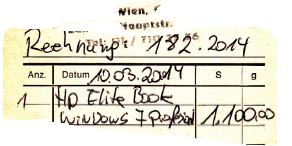 Wien,
Hauptstr.
Rechnung: 182.2014
Anz. Datum 10.03.2014 S g
1 Hp Elite Book
Windows 7 Professional 1.100,00